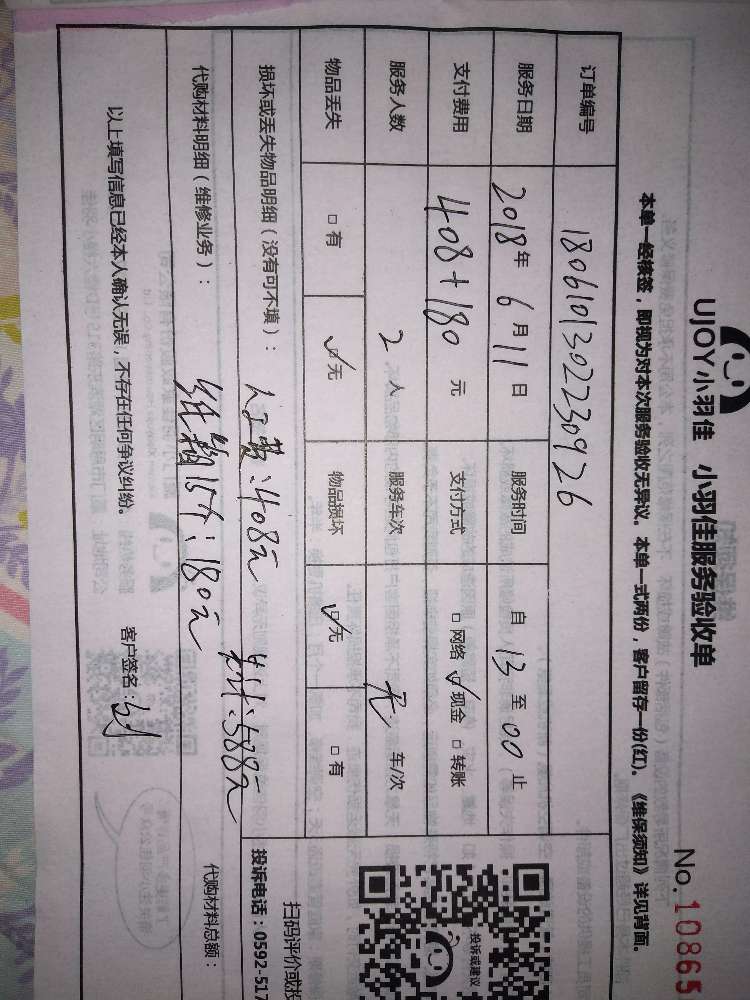 UJOY小羽佳 小羽佳服务验收单
No. 10865
本单一经核签，即视为对本次服务验收无异议。本单一式两份，客户留存一份(红)。《维保须知》详见背面。
订单编号 1806101302230926
服务日期 2018年6月11日 服务时间 自13至00止
支付费用 408+180元 支付方式 □网络 ☑现金 □转账
服务人数 2人 服务车次 无 车/次
物品丢失 □有 ☑无 物品损坏 ☑无 □有
损坏或丢失物品明细（没有可不填）： 人工费：408元 共计：588元
代购材料明细（维修业务）： 纸箱15个：180元 代购材料总额：
以上填写信息已经本人确认无误，不存在任何争议纠纷。 客户签名：
投诉或建议
扫码评价或投
投诉电话：0592-517